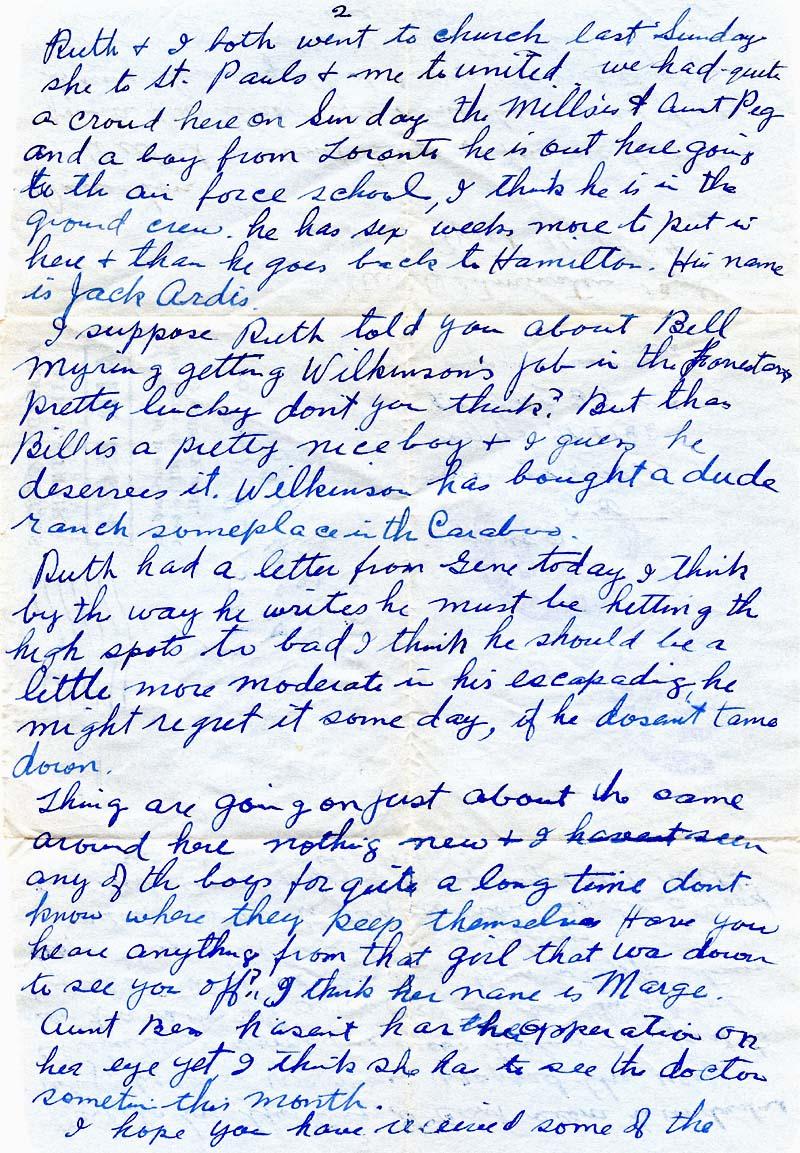 2
Ruth & I both went to church last Sunday
she to St. Pauls & me to united we had quite
a croud here on Sunday the Millsies & Aunt Peg
and a boy from Toronto he is out here going
to th air force school, I think he is in the
ground crew. he has six weeks more to put in
here & than he goes back to Hamilton. His name
is Jack Ardis.
I suppose Ruth told you about Bill
Myring getting Wilkinson's job in the
pretty lucky dont you think? But than
Bill is a pretty nice boy & I guess he
deserves it. Wilkinson has bought a dude
ranch someplace in th Cariboo.
Ruth had a letter from Gene today I think
by th way he writes he must be hitting th
high spots to bad I think he should be a
little more moderate in his escapading, he
might regret it some day, if he dosen't tame
down.
Thing are going on just about the same
around here nothing new & I havent seen
any of th boys for quite a long time dont
know where they keep themselves Have you
heare anything from that girl that wa down
to see you off?, I think her name is Marge.
Aunt hasent had the opperation on
her eye yet I think she ha to see th doctor
sometim this month.
I hope you have received some of the